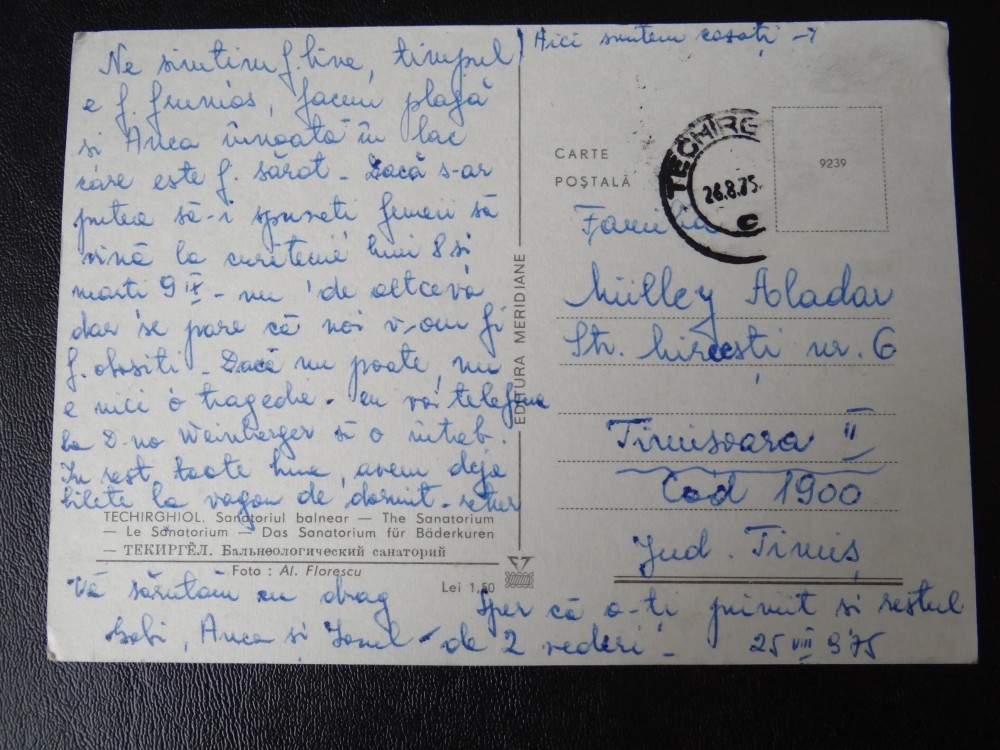 Aici suntem cazați →
Ne simtim f. bine, timpul
e f. frumos, facem plajă
si Anca înnoată în lac
care este f. sărat - Dacă s-ar
putea să-i spuneti femeii să
vină la curătenie luni 8 si
marti 9 IX - nu de altceva
dar se pare că noi v-om fi
f. obositi - Dacă nu poate, nu
e nici o tragedie - eu voi telefona
la D-na Weinberger si o întreb.
In rest toate bune, avem deja
bilete la vagon de dormit - retur
TECHIRGHIOL. Sanatoriul balnear — The Sanatorium
— Le Sanatorium — Das Sanatorium für Bäderkuren
— ТЕКИРГЁЛ. Бальнеологический санаторий
Foto : Al. Florescu
Lei 1,50
Vă sărutăm cu drag
Gabi, Anca și Ionel
Sper că a-ti primit si restul
de 2 vederi!
25 VIII 975
EDITURA MERIDIANE
CARTE
POȘTALĂ
TECHIRG
26.8.75.
C
9239
Familia
Aladar
Str. nr. 6
Timisoara II
Cod 1900
Jud. Timiș